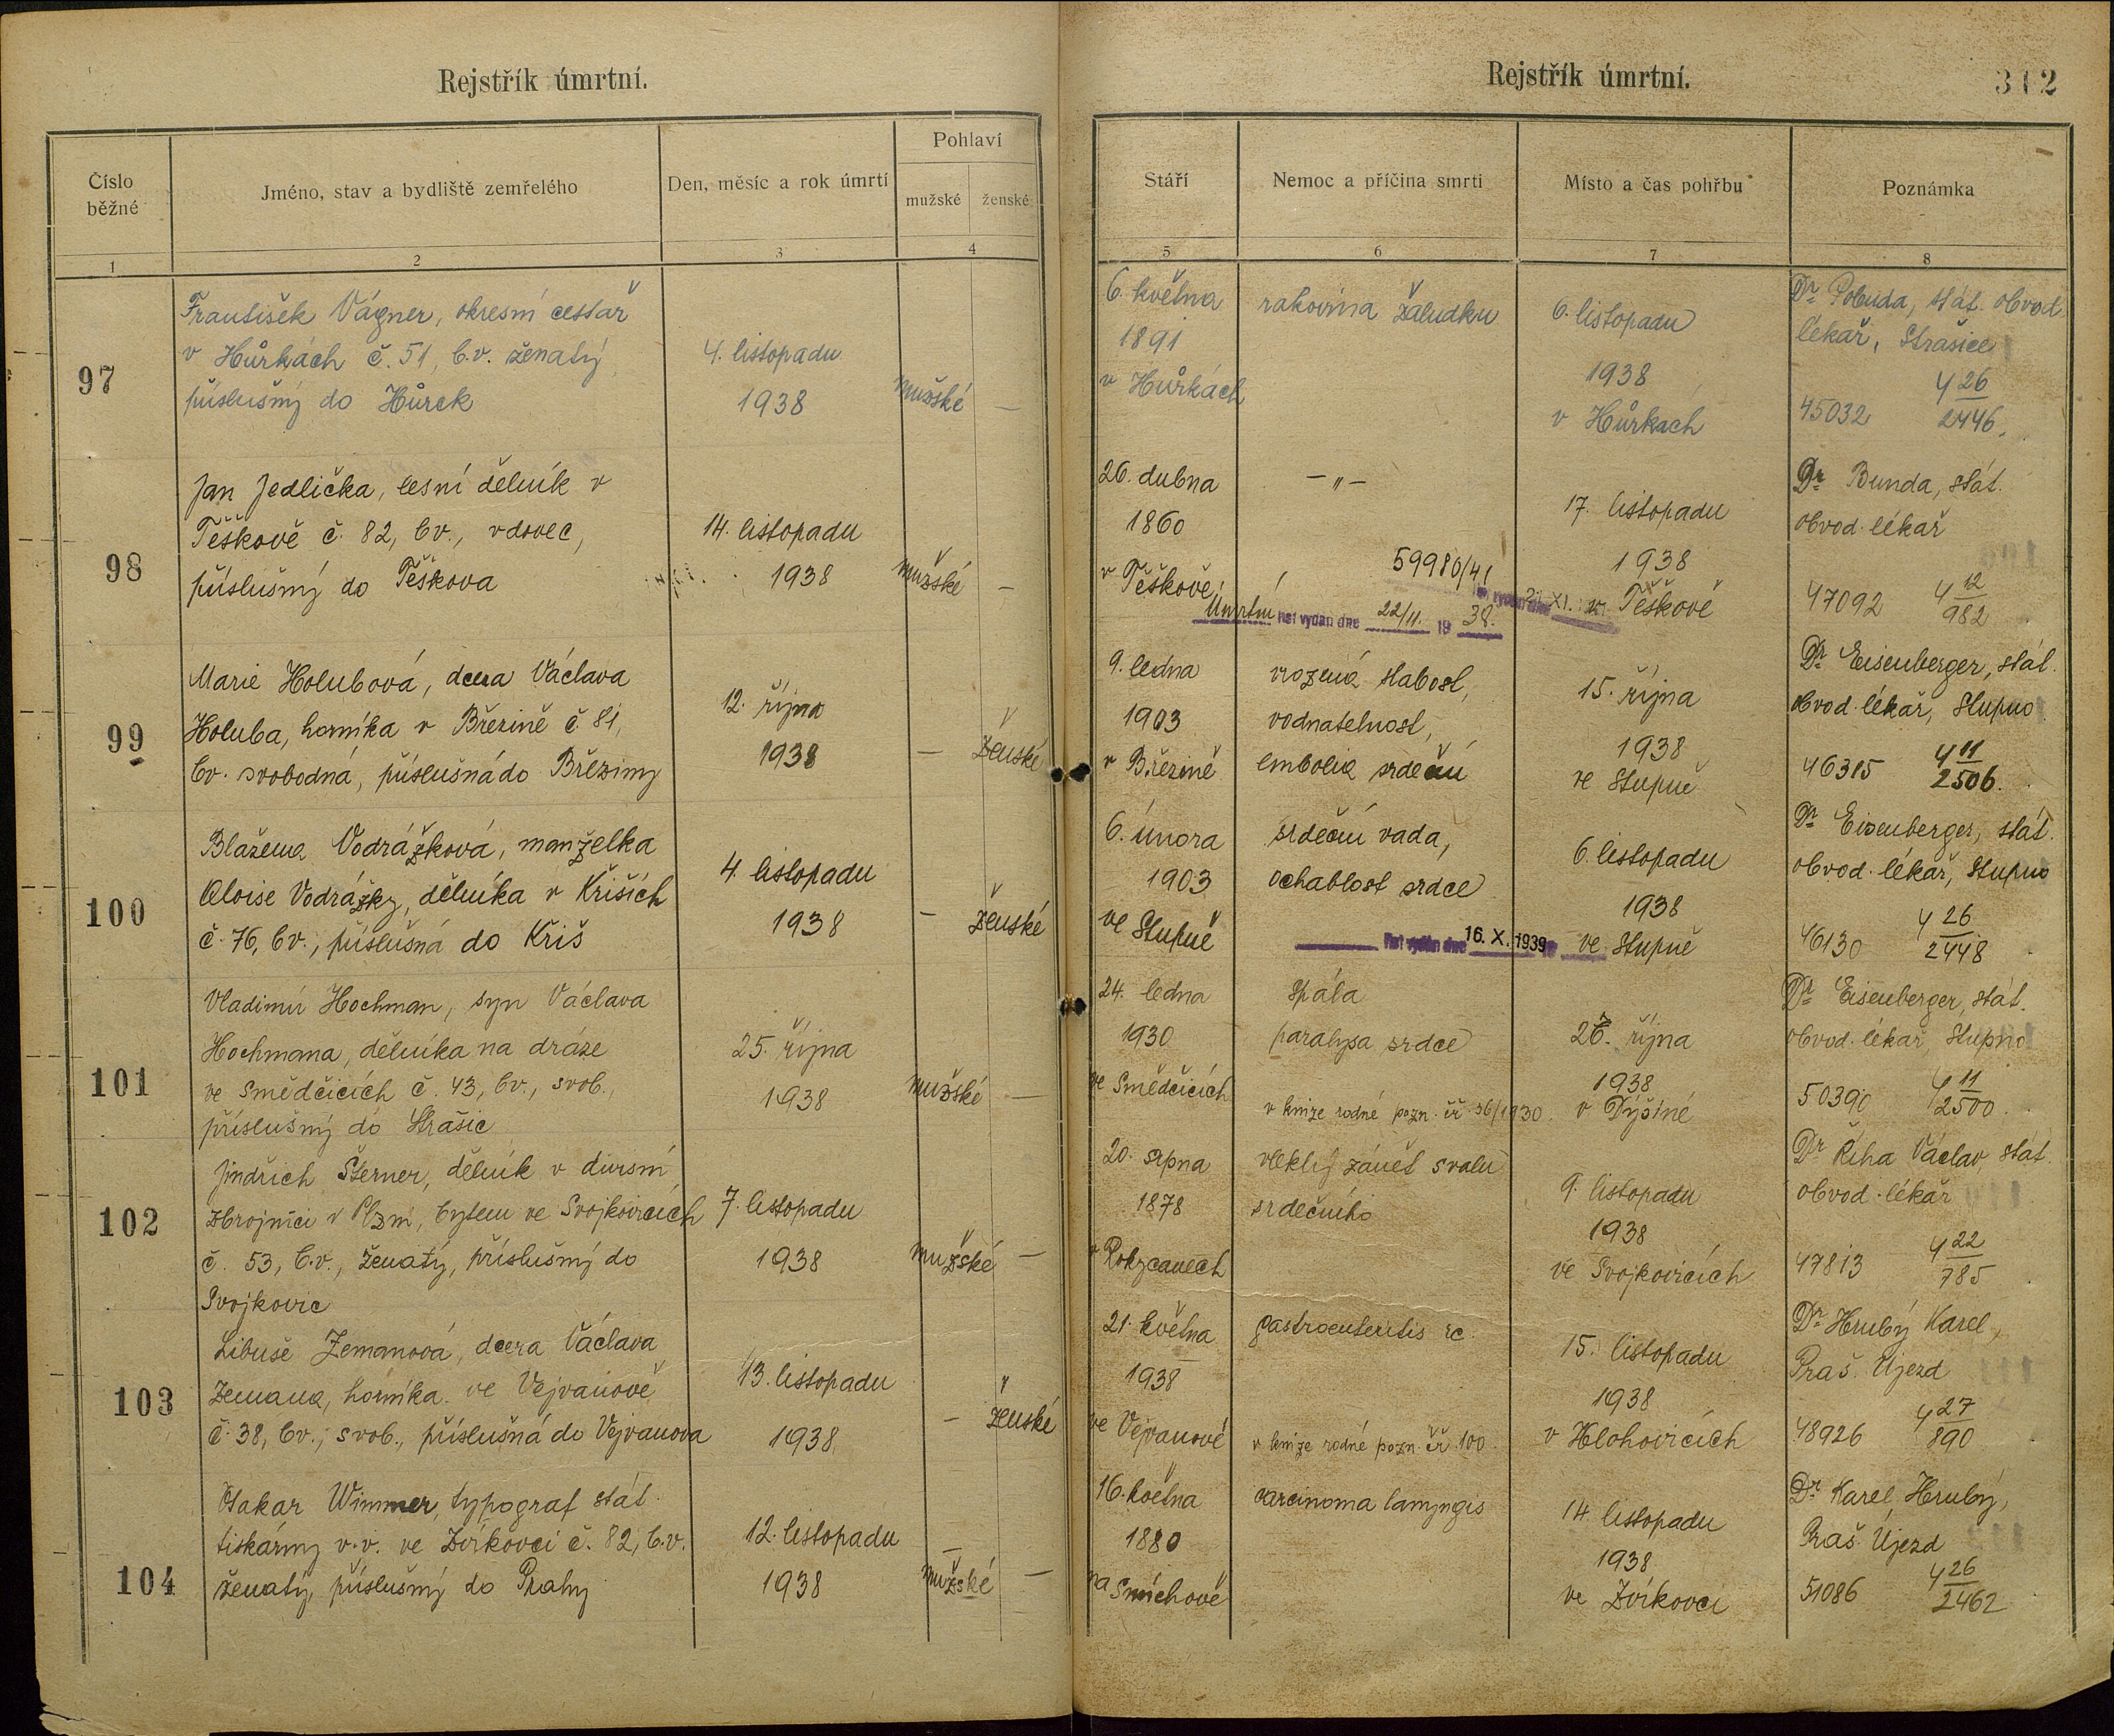 Rejstřík úmrtní.
Číslo běžné
Jméno, stav a bydliště zemřelého
Den, měsíc a rok úmrtí
Pohlaví
mužské
ženské
1
2
3
4
97
František Vágner, okresní cestář
v Hůrkách č. 51, b.v. ženatý
příslušný do Hůrek
4. listopadu
1938
mužské
—
98
Jan Jedlička, lesní dělník v
Těškově č. 82, bv., vdovec,
příslušný do Těškova
14. listopadu
1938
mužské
—
99
Marie Holubová, dcera Václava
Holuba, horníka v Březině č. 81,
bv. svobodná, příslušná do Březiny
12. října
1938
—
ženské
100
Blažena Vodrážková, manželka
Aloise Vodrážky, dělníka v Křiších
č. 76, bv., příslušná do Kříš
4. listopadu
1938
—
ženské
101
Vladimír Hochman, syn Václava
Hochmana, dělníka na dráze
ve Smědčicích č. 43, bv., svob.,
příslušný do Strašic
25. října
1938
mužské
—
102
Jindřich Šterner, dělník v
zbrojnici v Plzni, bytem ve Svojkovicích
č. 53, b.v., ženatý, příslušný do
Svojkovic
7. listopadu
1938
mužské
—
103
Libuše Zemanová, dcera Václava
Zemana, horníka ve Vejvanově
č. 38, bv., svob., příslušná do Vejvanova
13. listopadu
1938
—
ženské
104
Otakar Wimmer, typograf stát.
tiskárny v.v. ve Zvíkovci č. 82, b.v.
ženatý, příslušný do Prahy
12. listopadu
1938
mužské
—
Rejstřík úmrtní.
312
Stáří
Nemoc a příčina smrti
Místo a čas pohřbu
Poznámka
5
6
7
8
6. května
1891
v Hůrkách
rakovina žaludku
6. listopadu
1938
v Hůrkách
Dr Pobuda, stát. obvod.
lékař, Strašice
45032
4 26/2446.
26. dubna
1860
v Těškově
—„—
59980/41
Úmrtní list vydán dne 22/11. 19 38.
17. listopadu
1938
v Těškově
Dr Bunda, stát.
obvod. lékař
47092
4 12/982
9. ledna
1903
v Březině
vrozená slabost,
vodnatelnost,
embolia srdeční
15. října
1938
ve Stupně
Dr Eisenberger, stát.
obvod. lékař, Stupno
46315
4 11/2506.
6. února
1903
ve Stupně
srdeční vada,
ochablost srdce
list vydán dne 16. X. 1939
6. listopadu
1938
ve Stupně
Dr Eisenberger, stát.
obvod. lékař, Stupno
46130
4 26/2448
24. ledna
1930
ve Smědčicích
spála
paralysa srdce
v knize rodné pozn. čř 36/1930.
27. října
1938
v Dýšině
Dr Eisenberger, stát.
obvod. lékař, Stupno
50390
4 11/2500.
20. srpna
1878
v Rokycanech
vleklý zánět svalu
srdečního
9. listopadu
1938
ve Svojkovicích
Dr Říha Václav, stát.
obvod. lékař
47813
4 22/785
21. května
1938
ve Vejvanově
gastroenteritis ac.
v knize rodné pozn. čř 100
15. listopadu
1938
v Hlohovicích
Dr Hrubý Karel,
Praš. Újezd
48926
4 27/890
16. května
1880
na Smíchově
carcinoma laryngis
14. listopadu
1938
ve Zvíkovci
Dr Karel Hrubý,
Praš. Újezd
51086
4 26/2462